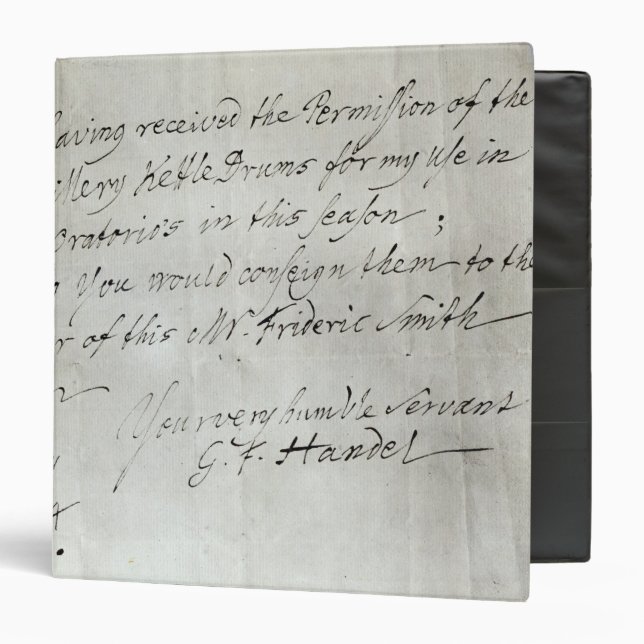 having received the Permission of the
illery Kettle Drums for my use in
Oratorio's in this season ;
You would consign them to the
r of this Mr. Frideric Smith
Your very humble Servant
G. F. Handel